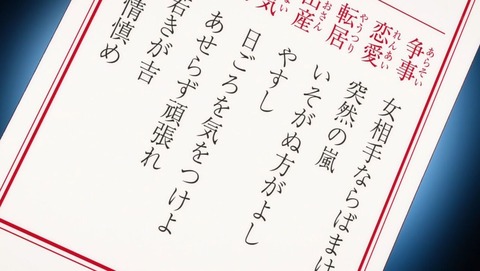 争事 あらそい 女相手ならばまけ
恋愛 れんあい 突然の嵐
転居 やうつり いそがぬ方がよし
出産 おさん やすし
気 日ごろを気をつけよ
あせらず頑張れ
若きが吉
情慎め